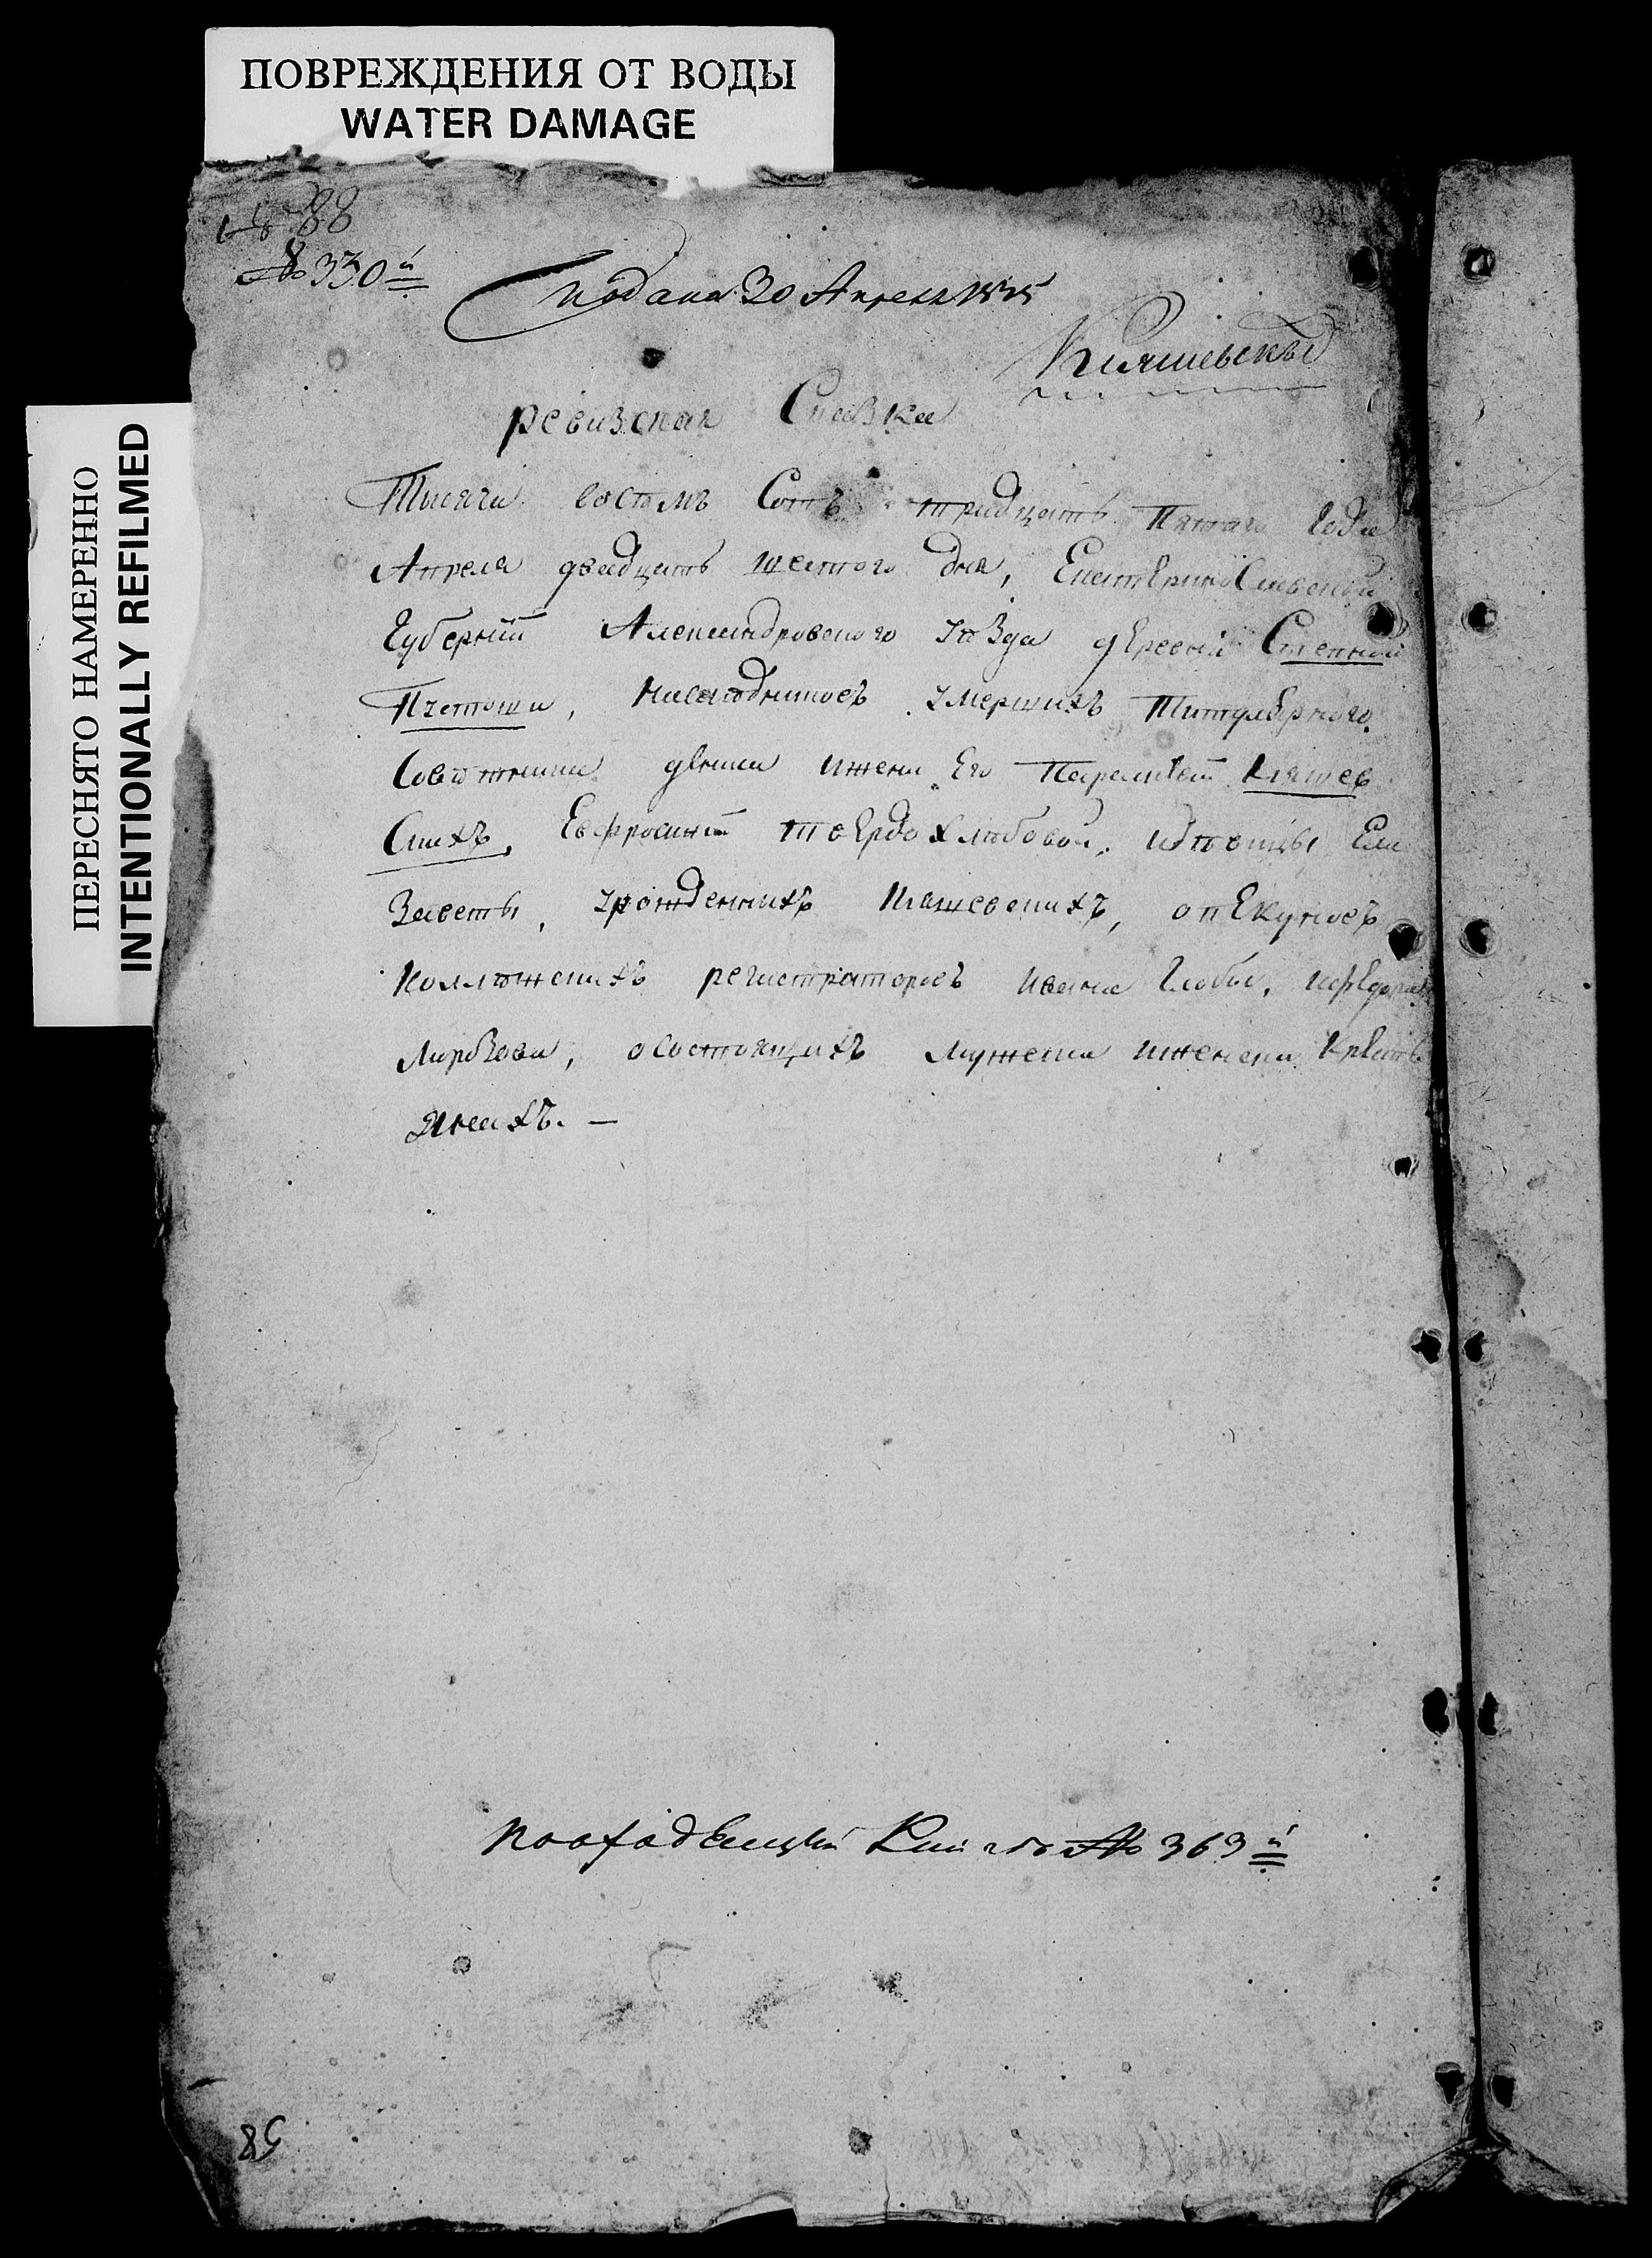 ПОВРЕЖДЕНИЯ ОТ ВОДЫ
WATER DAMAGE
ПЕРЕСНЯТО НАМЕРЕННО
INTENTIONALLY REFILMED
88
№ 330й
Подана 30 Апреля
Кляшевскъ
ревизская Сказка
Тысяча восемъ Сотъ тридцать Пятаго Года
Апреля двадцать шестого дня, ЕкатериноСлавской
Губерніи Александровского уѣзда деревни Степной
Пчетоши, наследниковъ умершихъ Титулярного
Советника жены Его Кляшев
Скихъ, Евфросиніи твердохлѣбовой, идѣвицы Ели
Заветы, урожденныхъ Кляшевскихъ, опекуновъ
Коллежскихъ регистраторовъ Ивана Глобы, ифедора
осостоящихъ мужеска иженска крѣсть
янехъ. —
Пооходящей Книгѣ № 363й
85